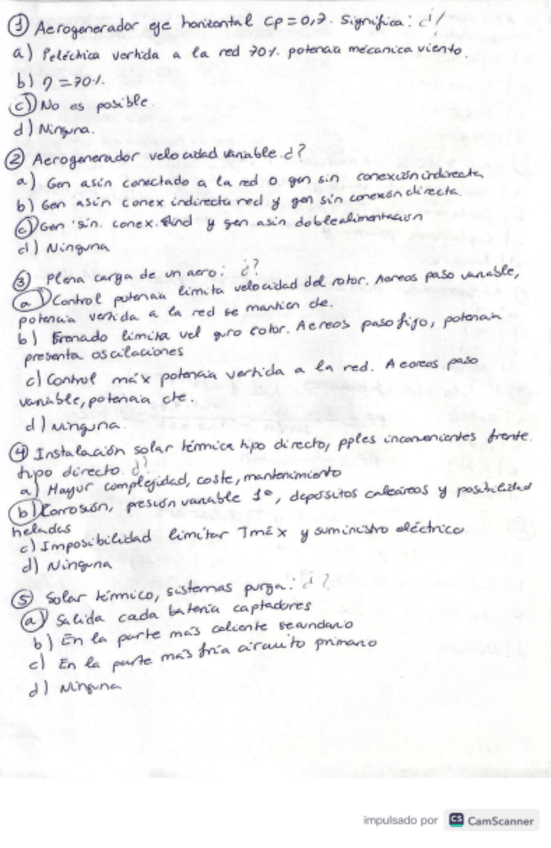 ① Aerogenerador eje horizontal Cp=0,7. Significa: ¿!
a) Peléctrica vertida a la red 70% potencia mecanica viento.
b) η = 70%.
c) No es posible.
d) Ninguna.
② Aerogenerador velocidad variable ¿?
a) Gen asín conectado a la red o gen sin conexión indirecta
b) Gen asín conex indirecta red y gen sin conexión directa.
c) Gen sin. conex. ind y gen asin doble alimentación
d) Ninguna
③ Plena carga de un aero: ¿?
a) Control potencia limita velocidad del rotor. Aereos paso variable,
potencia vertida a la red se mantien cte.
b) Frenado limita vel giro rotor. Aereos paso fijo, potencia
presenta oscilaciones
c) Control máx potencia vertida a la red. Aereos paso
variable, potencia cte.
d) Ninguna.
④ Instalación solar térmica tipo directo, pples inconvenientes frente
tipo directo ¿?
a) Mayor complejidad, coste, mantenimiento
b) Corrosión, presión variable 1º, depositos calcáreos y posibilidad
heladas
c) Imposibilidad limitar Tmáx y suministro eléctrico
d) Ninguna
⑤ Solar térmico, sistemas purga: ¿?
a) Salida cada batería captadores
b) En la parte más caliente secundario
c) En la parte más fría circuito primario
d) Ninguna
impulsado por CS CamScanner